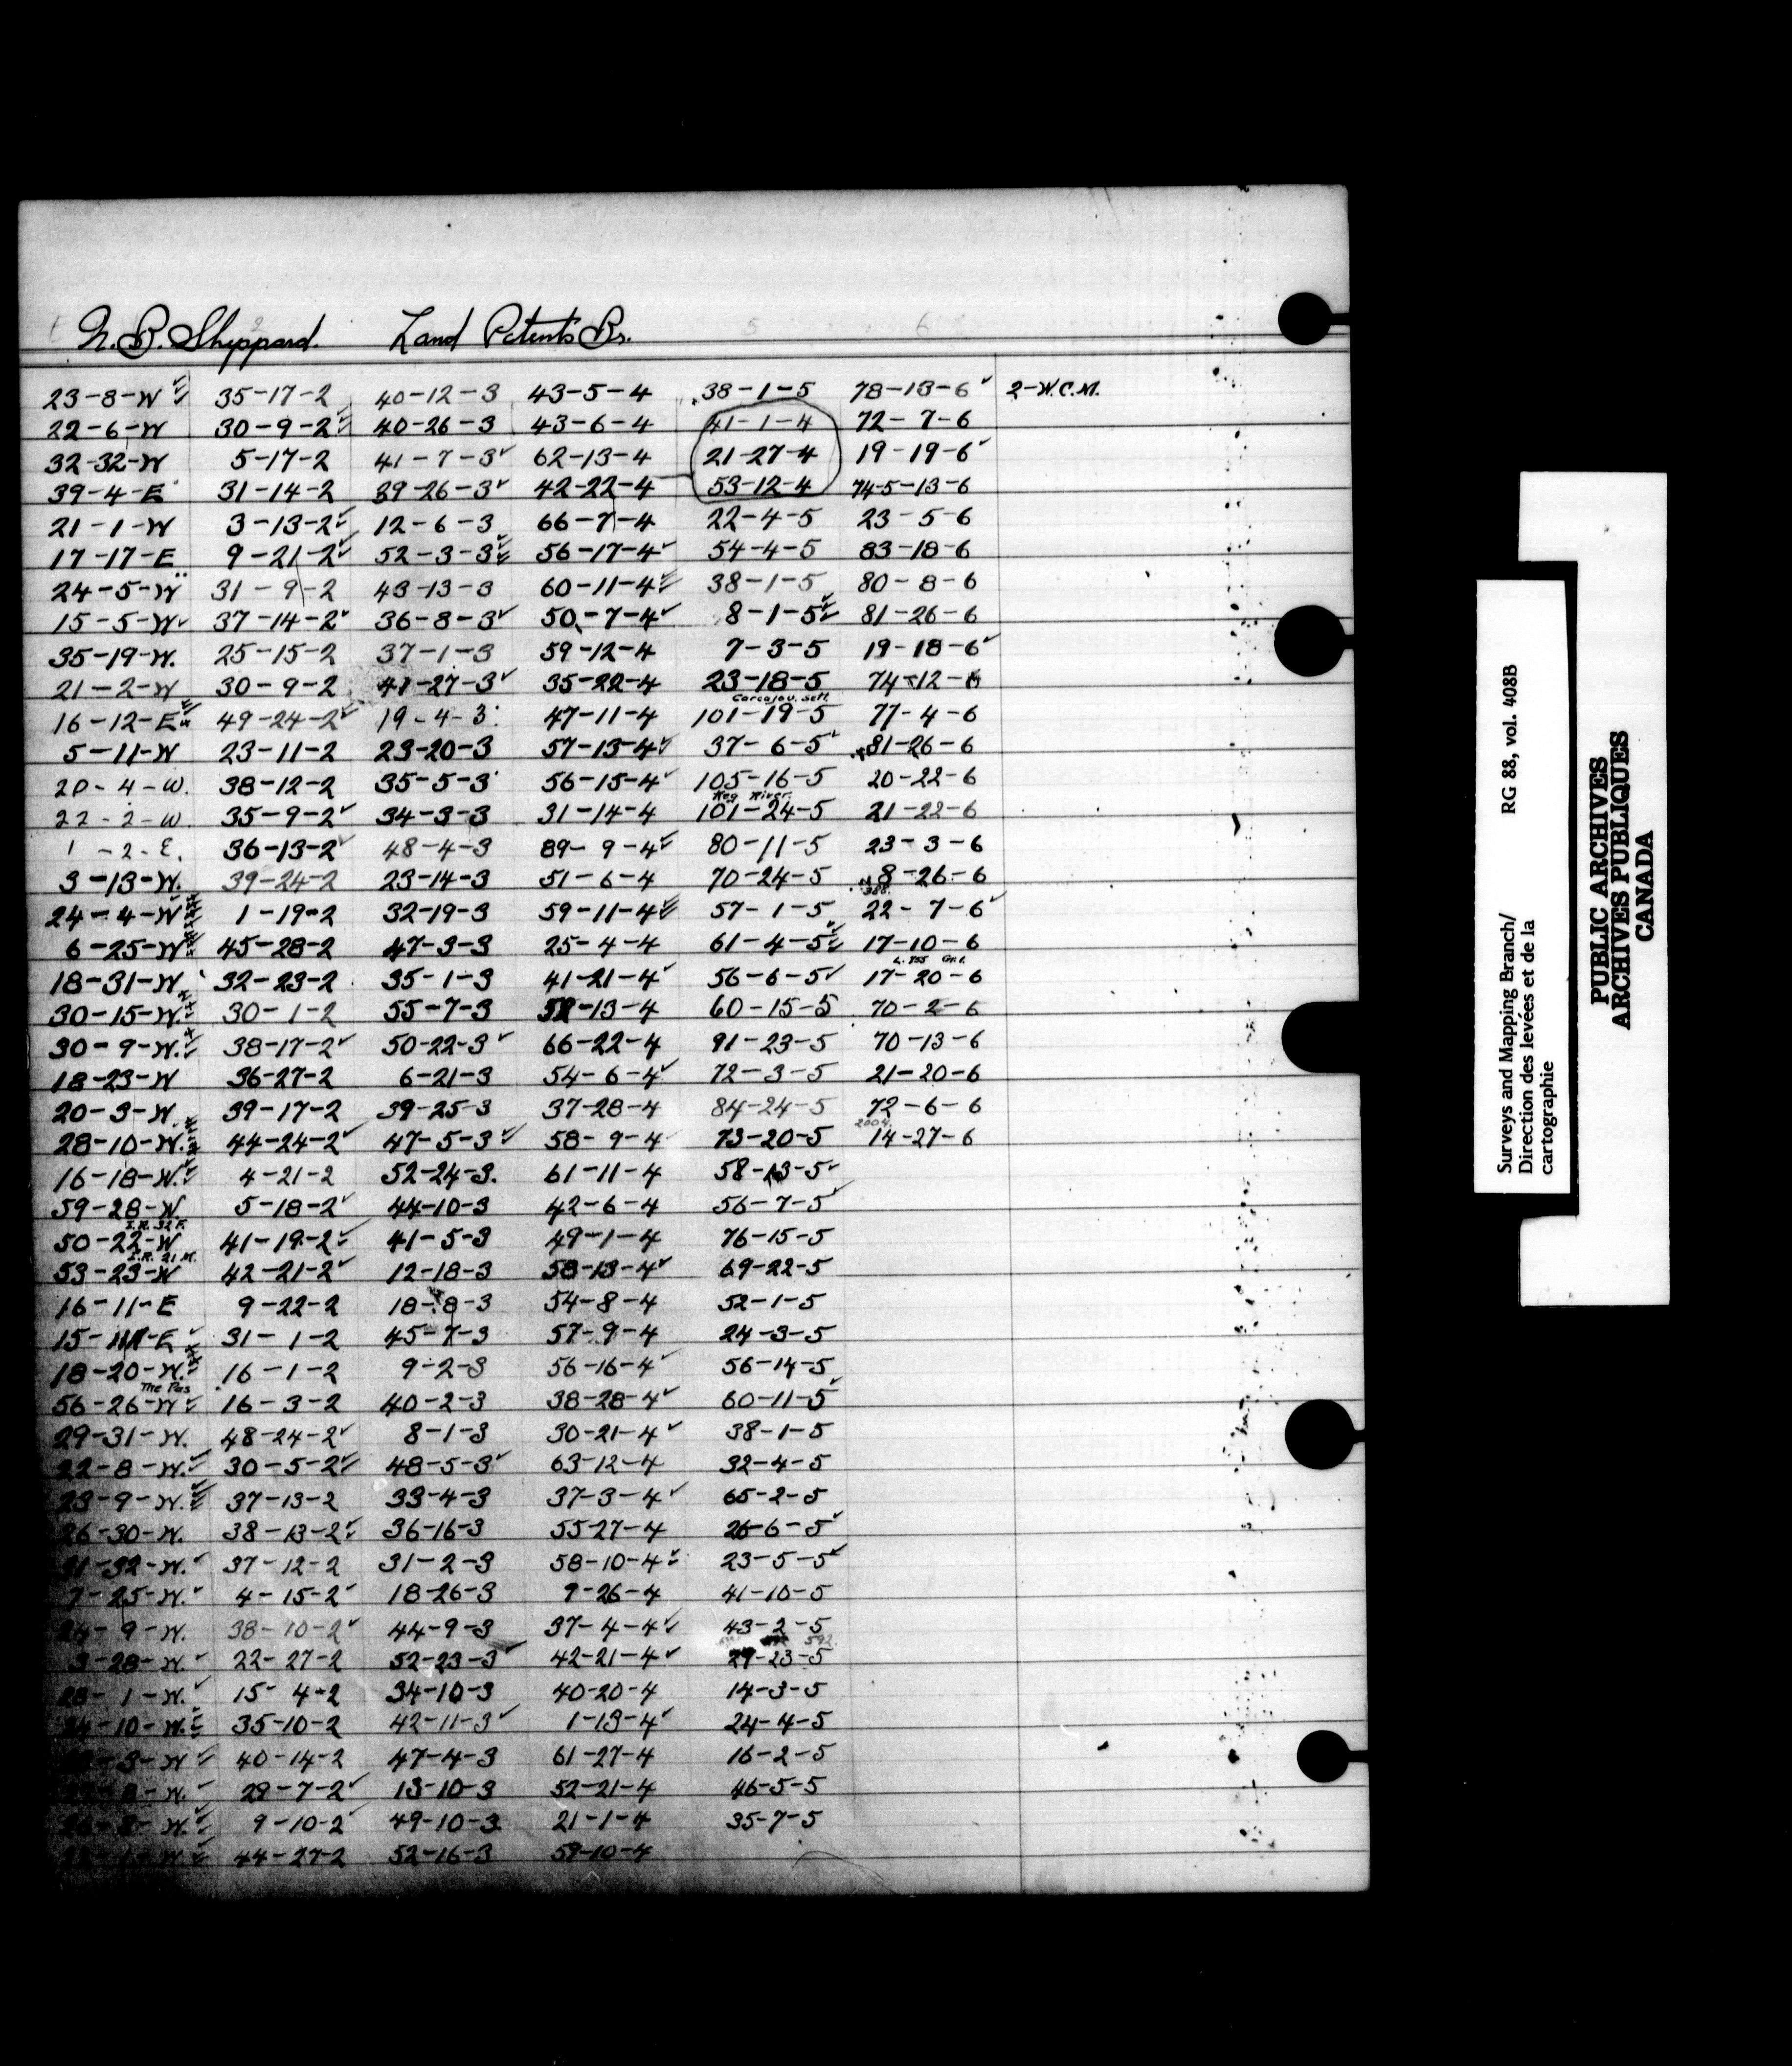 N. B. Sheppard. Land Patents Br.
23-8-W 35-17-2 40-12-3 43-5-4 38-1-5 78-13-6 2-W.C.M.
22-6-W 30-9-2 40-26-3 43-6-4 41-1-4 72-7-6
32-32-W 5-17-2 41-7-3 62-13-4 21-27-4 19-19-6
39-4-E 31-14-2 39-26-3 42-22-4 53-12-4 74-5-13-6
21-1-W 3-13-2 12-6-3 66-7-4 22-4-5 23-5-6
17-17-E 9-21-2 52-3-3 56-17-4 54-4-5 83-18-6
24-5-W 31-9-2 43-13-3 60-11-4 38-1-5 80-8-6
15-5-W 37-14-2 36-8-3 50-7-4 8-1-5 81-26-6
35-19-W. 25-15-2 37-1-3 59-12-4 7-3-5 19-18-6
21-2-W 30-9-2 41-27-3 35-22-4 23-18-5 74-12-6
Carcajou. Settl.
16-12-E 49-24-2 19-4-3 47-11-4 101-19-5 77-4-6
5-11-W 23-11-2 23-20-3 57-13-4 37-6-5 81-26-6
20-4-W. 38-12-2 35-5-3 56-15-4 105-16-5 20-22-6
Keg River.
22-2-W. 35-9-2 34-3-3 31-14-4 101-24-5 21-22-6
1-2-E. 36-13-2 48-4-3 89-9-4 80-11-5 23-3-6
3-13-W. 39-24-2 23-14-3 51-6-4 70-24-5 8-26-6
24-4-W 1-19-2 32-19-3 59-11-4 57-1-5 22-7-6
6-25-W 45-28-2 47-3-3 25-4-4 61-4-5 17-10-6
L. 755 Gr.1.
18-31-W 32-23-2 35-1-3 41-21-4 56-6-5 17-20-6
30-15-W. 30-1-2 55-7-3 52-13-4 60-15-5 70-2-6
30-9-W. 38-17-2 50-22-3 66-22-4 91-23-5 70-13-6
18-23-W 36-27-2 6-21-3 54-6-4 72-3-5 21-20-6
20-3-W. 39-17-2 39-25-3 37-28-4 84-24-5 72-6-6
28-10-W. 44-24-2 47-5-3 58-9-4 73-20-5 14-27-6
16-18-W. 4-21-2 52-24-3. 61-11-4 58-13-5
59-28-W 5-18-2 44-10-3 42-6-4 56-7-5
I.R. 32 F.
50-22-W 41-19-2 41-5-3 49-1-4 76-15-5
I.R. 21 M.
53-23-W 42-21-2 12-18-3 58-13-4 69-22-5
16-11-E 9-22-2 18-8-3 54-8-4 52-1-5
15-11-E 31-1-2 45-7-3 57-9-4 24-3-5
18-20-W. 16-1-2 9-2-3 56-16-4 56-14-5
The Pas
56-26-W 16-3-2 40-2-3 38-28-4 60-11-5
29-31-W. 48-24-2 8-1-3 30-21-4 38-1-5
22-8-W. 30-5-2 48-5-3 63-12-4 32-4-5
23-9-W. 37-13-2 33-4-3 37-3-4 65-2-5
26-30-W. 38-13-2 36-16-3 55-27-4 26-6-5
31-32-W. 37-12-2 31-2-3 58-10-4 23-5-5
7-25-W. 4-15-2 18-26-3 9-26-4 41-10-5
24-9-W. 38-10-2 44-9-3 37-4-4 43-2-5
3-28-W. 22-27-2 52-23-3 42-21-4 29-23-5
28-1-W. 15-4-2 34-10-3 40-20-4 14-3-5
24-10-W. 35-10-2 42-11-3 1-13-4 24-4-5
3-W 40-14-2 47-4-3 61-27-4 16-2-5
8-W. 29-7-2 13-10-3 52-21-4 46-5-5
W. 9-10-2 49-10-3 21-1-4 35-7-5
W 44-27-2 52-16-3 59-10-4
Surveys and Mapping Branch/ RG 88, vol. 408B
Direction des levées et de la
cartographie
PUBLIC ARCHIVES
ARCHIVES PUBLIQUES
CANADA